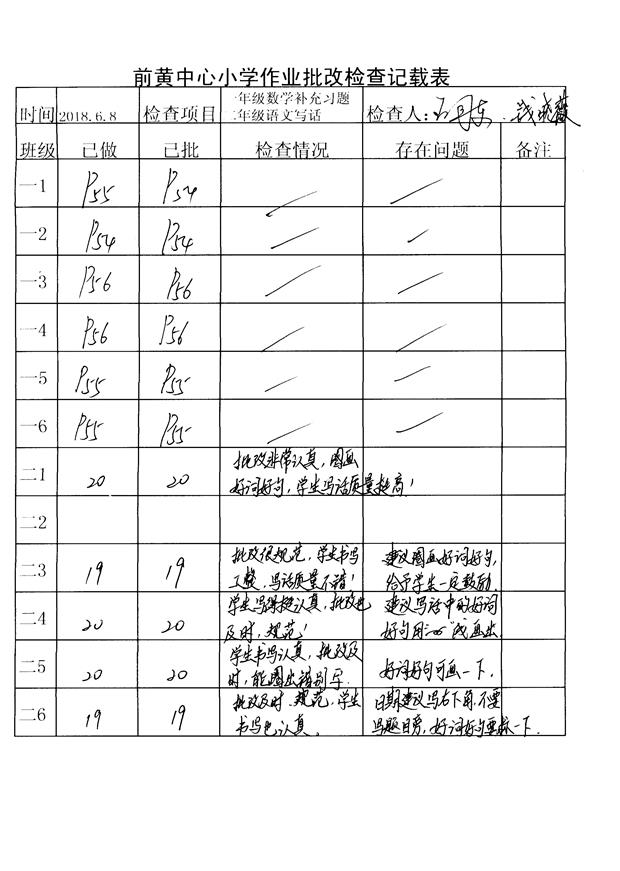 前黄中心小学作业批改检查记载表
时间 2018.6.8 检查项目 一年级数学补充习题 二年级语文写话 检查人:
班级 已做 已批 检查情况 存在问题 备注
一1 P55 P54
一2 P54 P54
一3 P56 P56
一4 P56 P56
一5 P55 P55
一6 P55 P55
二1 20 20 批改非常认真,圈画
好词好句,学生写话质量挺高!
二2
二3 19 19 批改很规范,学生书写 建议圈画好词好句,
工整,写话质量不错! 给予学生一定鼓励
二4 20 20 学生写得挺认真,批改也 建议写话中的好词
及时,规范! 好句用"~~"线画出
二5 20 20 学生书写认真,批改及 好词好句可画一下.
时,能圈出错别字.
二6 19 19 批改及时.规范,学生 日期建议写右下角,不要
书写也认真. 写题目旁,好词好句要标一下.